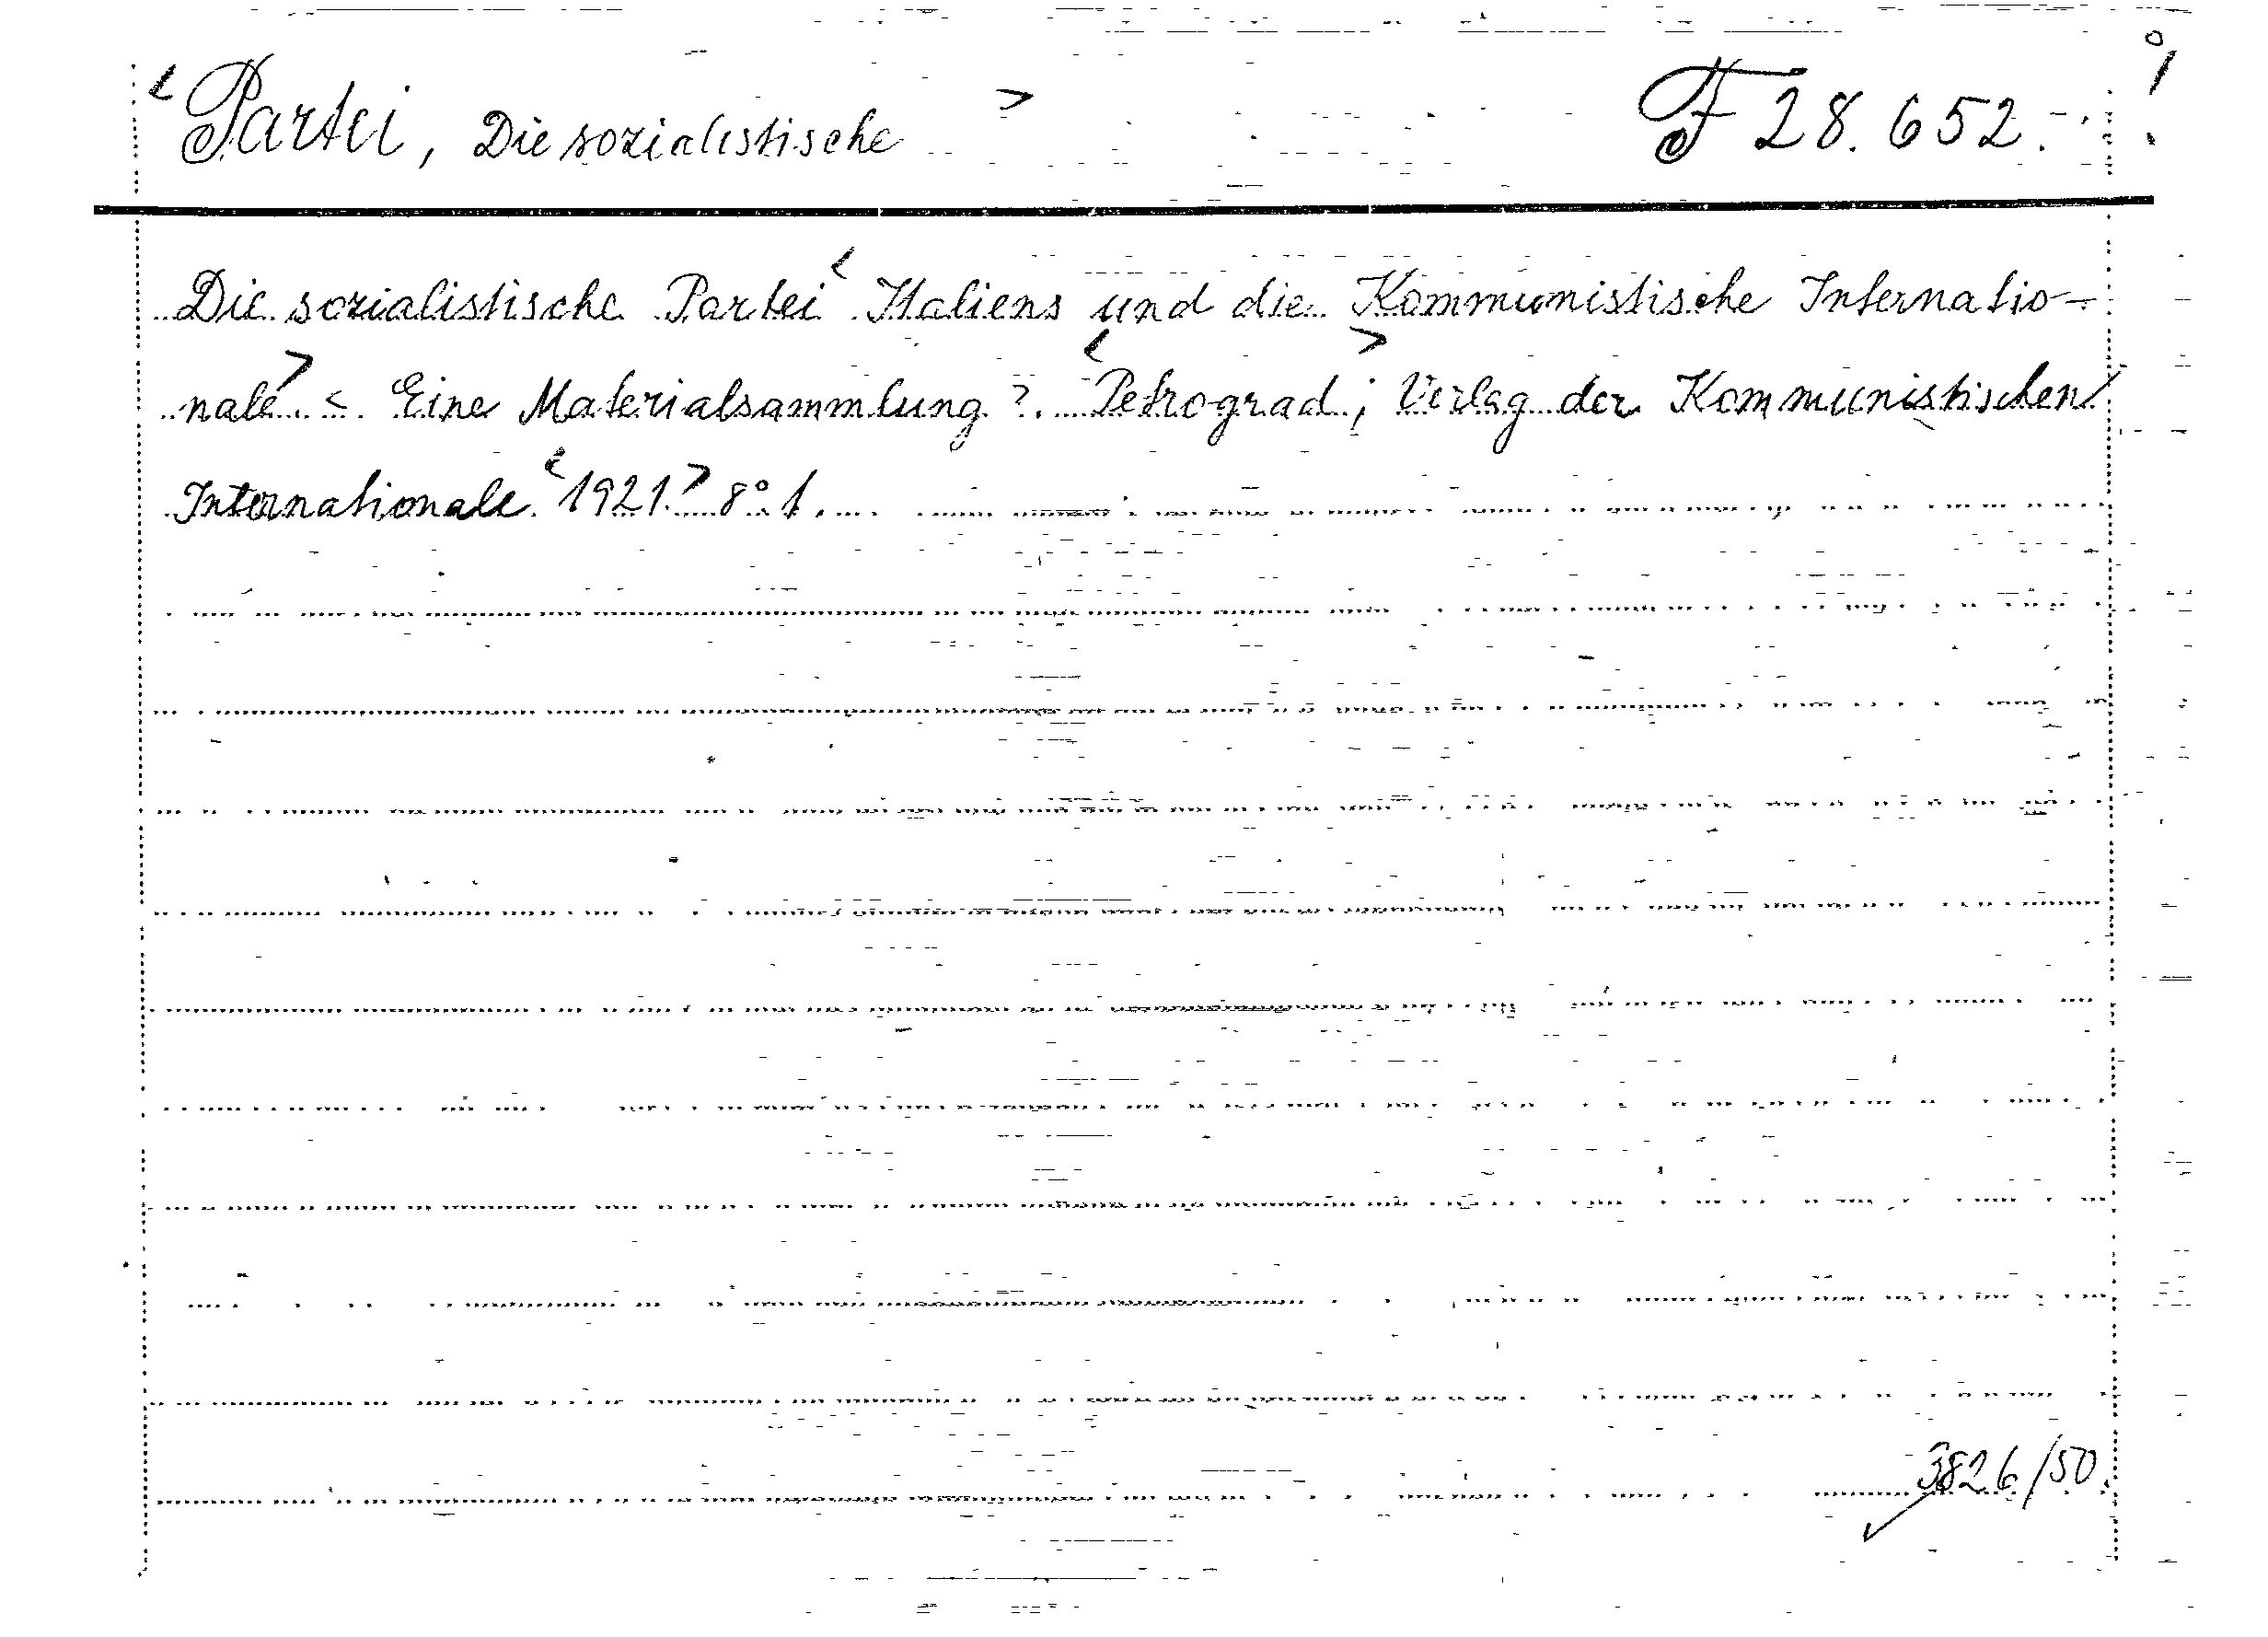 <Partei, Die sozialistische> F 28.652.
Die sozialistische Partei <Italiens und die Kommunistische Internatio-
nale> < Eine Materialsammlung >. <Petrograd>; Verlag der Kommunistischen
Internationale <1921.> 8° 1.
3826/50